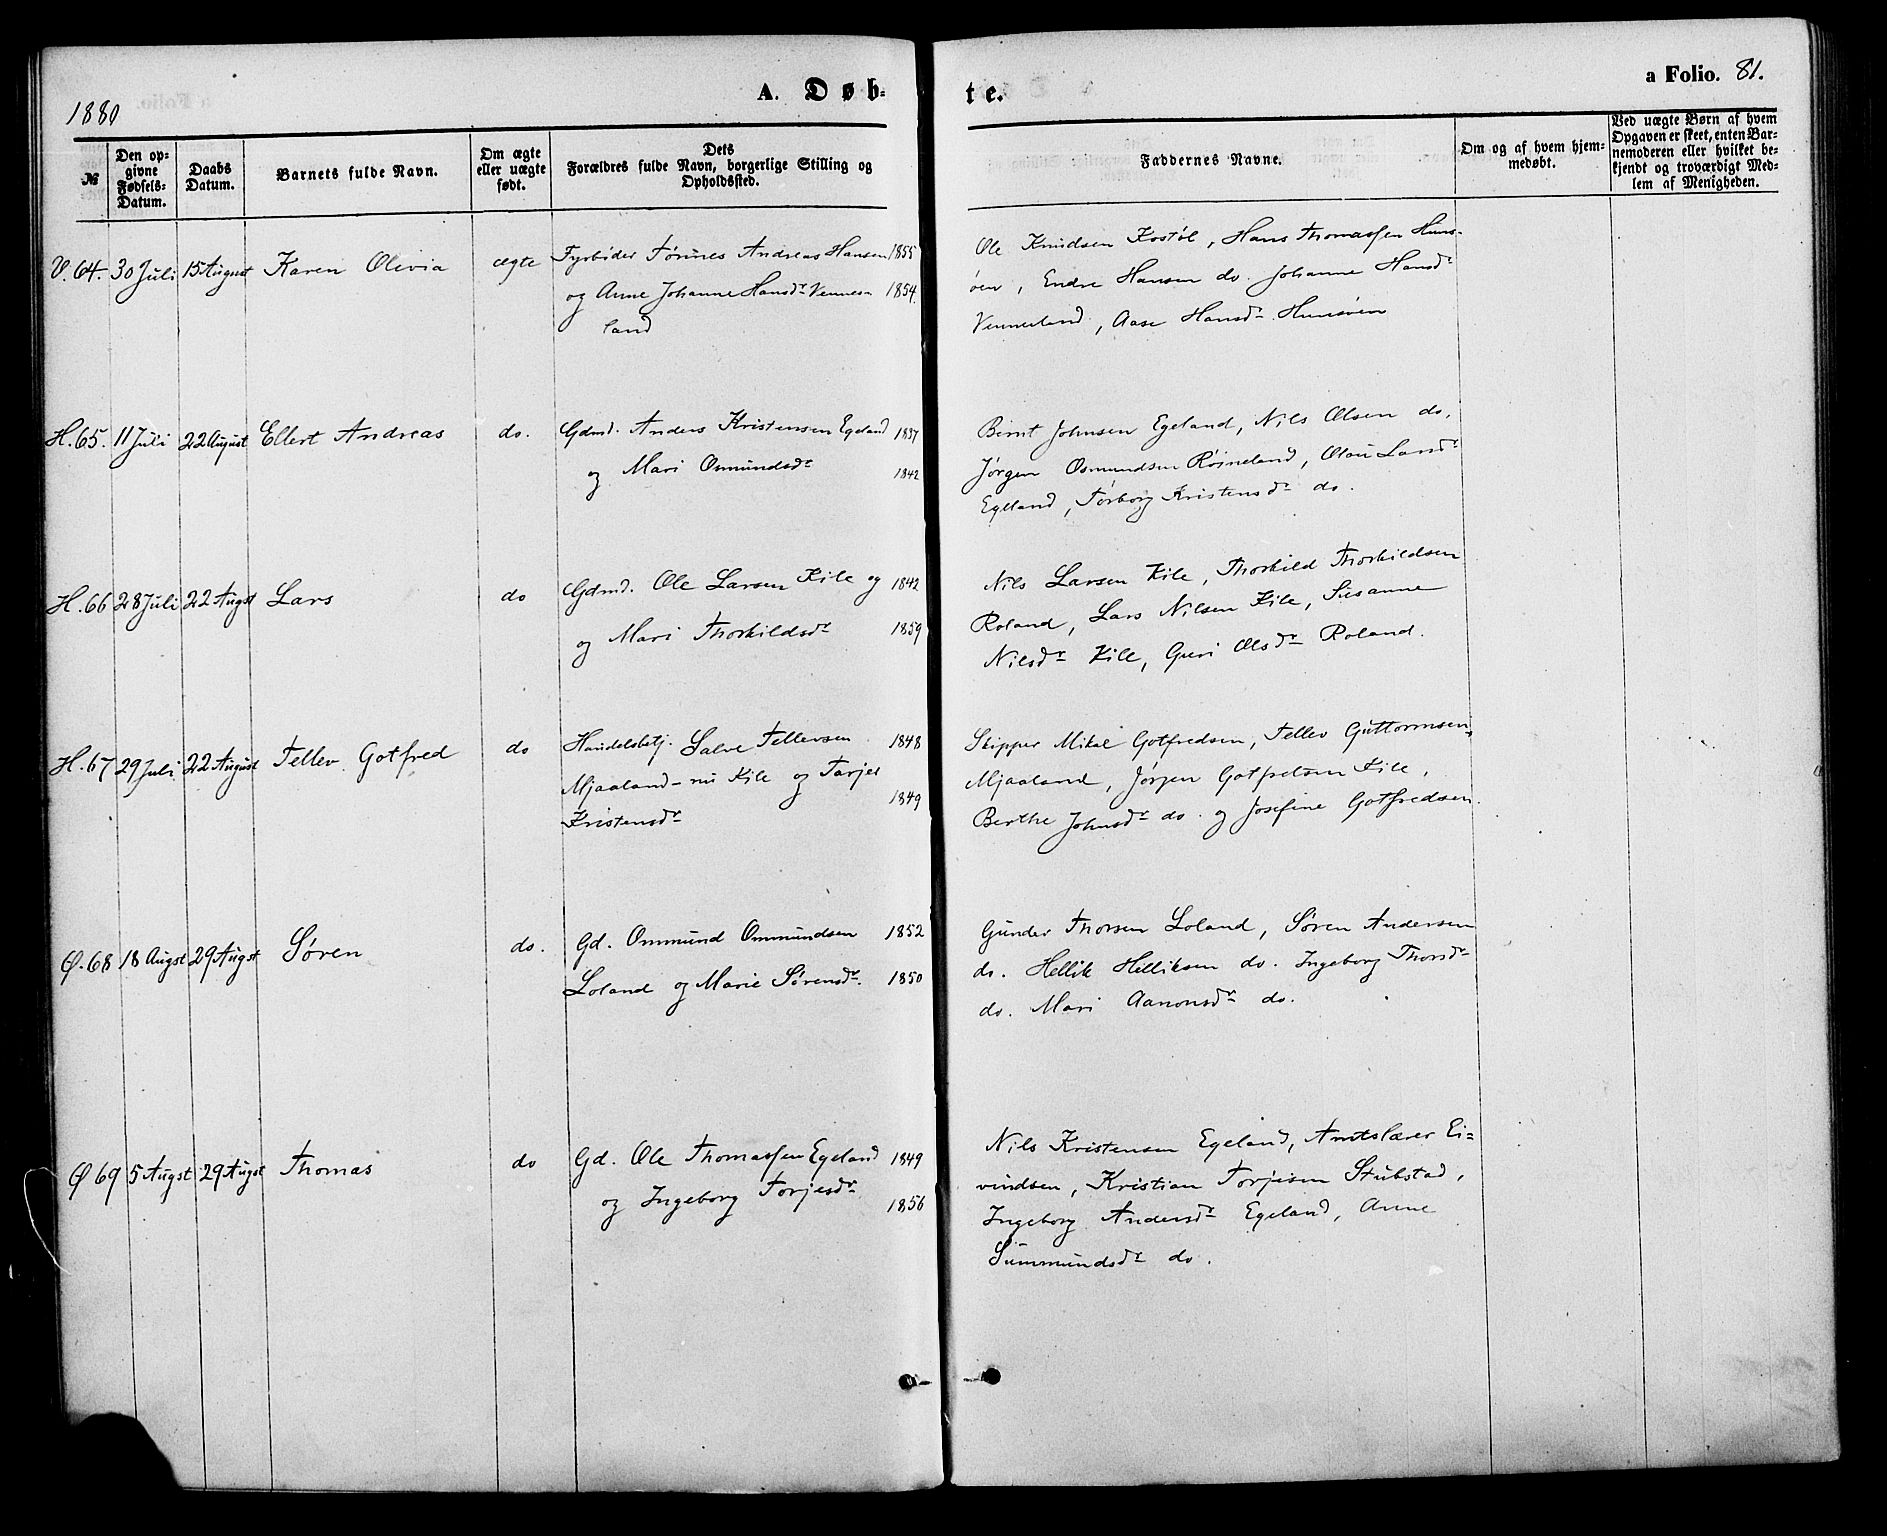 1880
A. Døb-
te.
a Folio. 81.
№
Den op-
givne
Fødsels-
Datum.
Daabs
Datum.
Barnets fulde Navn.
Om ægte
eller uægte
født.
Dets
Forældres fulde Navn, borgerlige Stilling og
Opholdssted.
Faddernes Navne.
Om og af hvem hjem-
medøbt.
Ved uægte Børn af hvem
Opgaven er skeet, enten Bar-
nemoderen eller hvilket be-
kjendt og troværdigt Med-
lem af Menigheden.
V. 64. 30 Juli 15 August Karen Olivia ægte Fyrbøder Tørines Andreas Hansen 1855
og Anne Johanne Hansdr Vennes- 1854
land
Ole Knudsen Kostøl, Hans Thomassen Huns-
øen, Endre Hansen do. Johanne Hansdr
Vennesland, Aase Hansdr Hunsøen
H. 65. 11 Juli 22 August Ellert Andreas do. Gdmd. Anders Kristensen Egeland 1837
og Mari Osmundsdr 1842
Bernt Johnsen Egeland, Nils Olsen do.
Jørgen Osmundsen Røineland, Olou Larsdr
Egeland, Tørborg Kristensdr do.
H. 66 28 Juli 22 Augst Lars do Gdmd. Ole Larsen Kile og 1842
og Mari Thorkildsdr 1859
Nils Larsen Kile, Thorkild Thorkildsen
Roland, Lars Nilsen Kile, Susanne
Nilsdr Kile, Guri Olsdr Roland.
H. 67 29 Juli 22 August Tellev Gotfred do Handelsbetj. Salve Tellevsen 1848
Mjaaland - nu Kile og Tarjer 1849
Kristensdr
Skipper Mikal Gotfredsen, Tellev Guttormsen
Mjaaland, Jørgen Gotfredsen Kile,
Berthe Johnsdr do. og Josefine Gotfredsen.
Ø. 68 18 Augst 29 Augst Søren do. Gd. Ommund Ommundsen 1852
Loland og Marie Sørensdr. 1850
Gunder Thorsen Loland, Søren Andersen
do. Hellik Helliksen do. Ingeborg Thorsdr
do. Mari Aanonsdr do.
Ø 69 5 Augst 29 Augst Thomas do Gd. Ole Thomassen Egeland 1849
og Ingeborg Torjesdr 1856
Nils Kristensen Egeland, Amtslærer Ei-
vindsen, Kristian Torjesen Stubstad,
Ingeborg Andersdr Egeland, Anne
Summundsdr do.